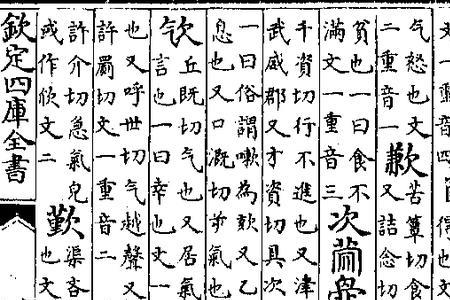 文一重音四
得也文
气怒也文
二重音一
歉
苦簟切食
又詰念切
貧也一曰食不
滿文一重音三
次
千資切行不進也又津
武威郡又才資切具次
一曰俗謂嗽為欬又乙
息也又口溉切屰氣也
丘既切气也又居氣
言也一曰幸也文一
也又呼世切气越聲又
許罽切文一重音二
許介切急氣皃
或作文二
渠吝
也文
欽定四庫全書